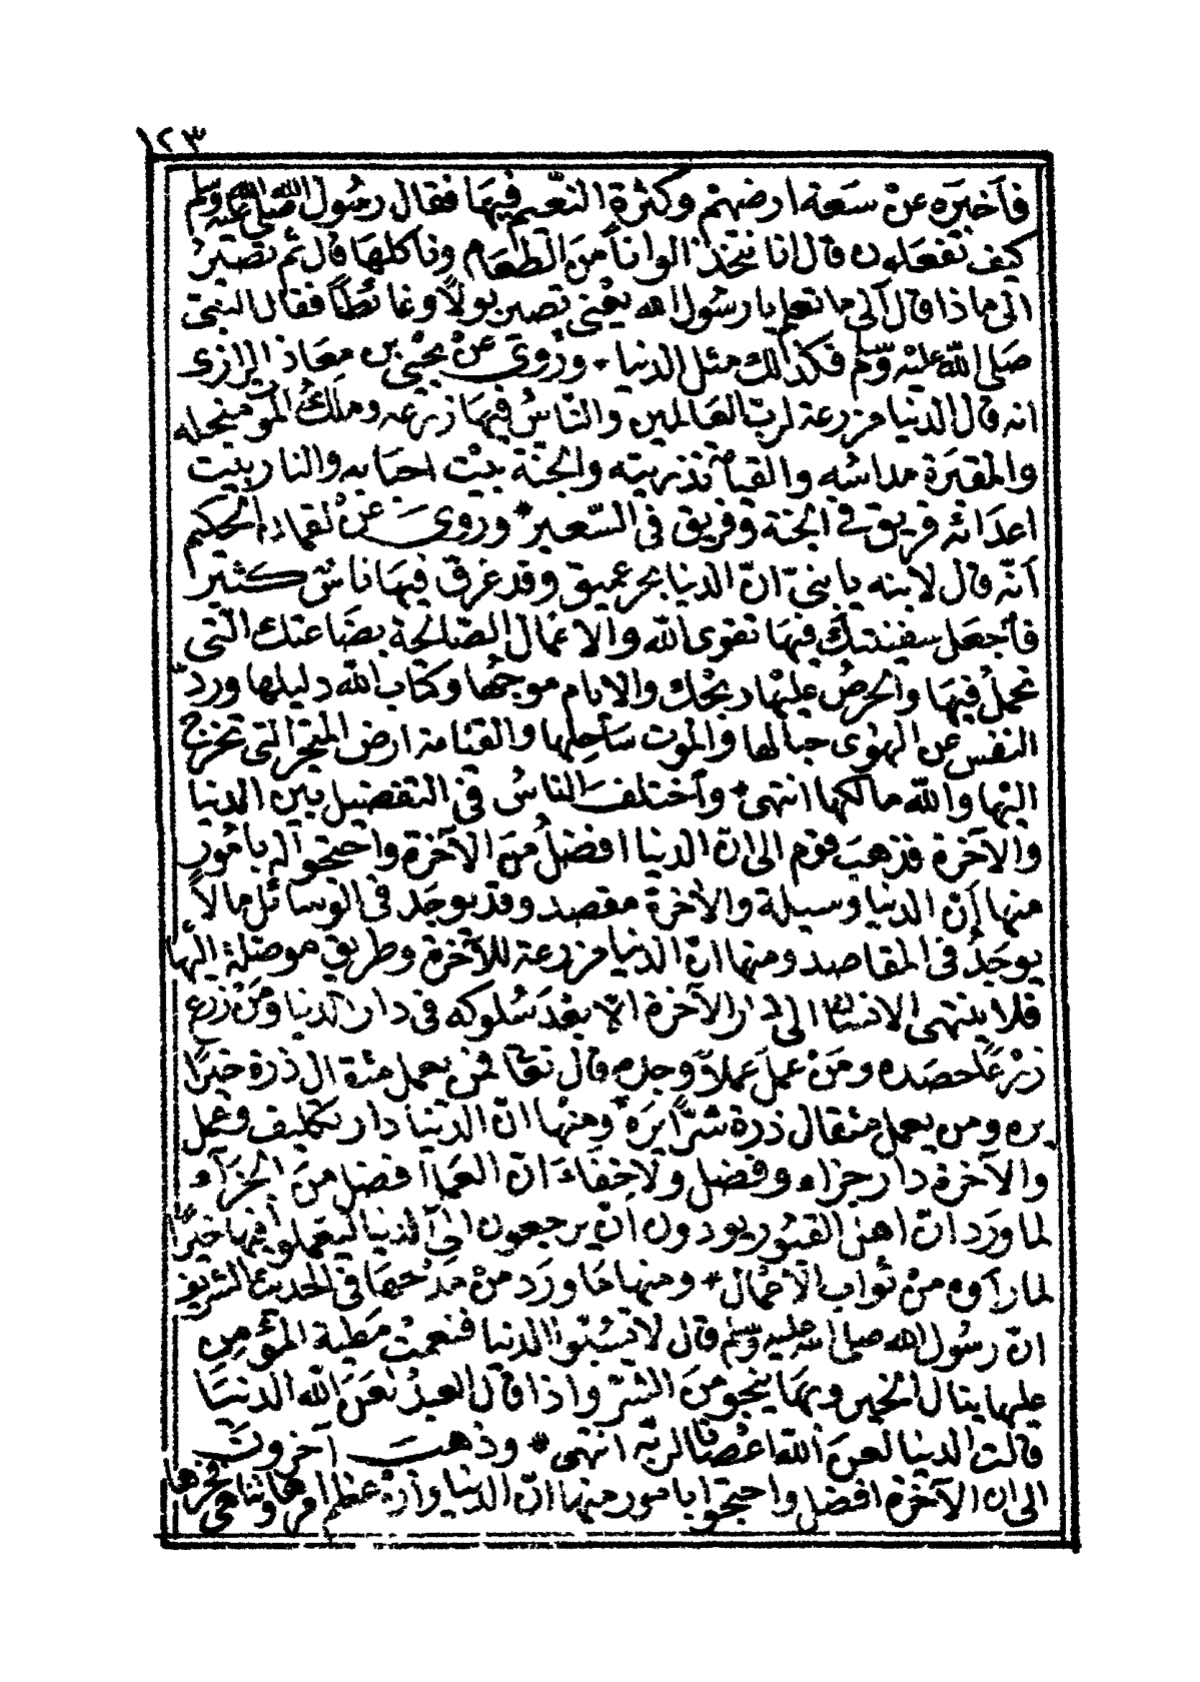 ١٢٣
فأخبره عن سعة ارضهم وكثرة النعيم فيها فقال رسول الله صلى الله عليه وسلم
كيف تفعلون قال انا نتخذ الوانا من الطعام وناكلها قال ثم تصير
الى ماذا قال الى ما تعلم يا رسول الله يعنى تصير بولا وغائطا فقال النبى
صلى الله عليه وسلم فكذالك مثل الدنيا * وروى عن يحيى بن معاذ الرازى
انه قال الدنيا مزرعة لرب العالمين والناس فيها زرعه وملك الموت منجله
والمقبرة مداسه والقيامة تذريته والجنة بيت احبابه والنار بيت
اعدائه فريق فى الجنة وفريق فى السعير * وروى عن لقمان الحكيم
أنه قال لابنه يا بنىّ انّ الدنيا بحر عميق وقد غرق فيها ناس كثير
فأجعل سفينتك فيها تقوى الله والاعمال الصالحة بضاعتك التى
تحمل فيها والحرص عليها ربحك والايام موجها وكتاب الله دليلها وردّ
النفس عن الهوى حبالها والموت ساحلها والقيامة ارض المتجر التى تخرج
اليها والله مالكها انتهى * وأختلف الناس فى التفضيل بين الدنيا
والآخرة فذهب قوم الى ان الدنيا افضل من الآخرة واحتجوا له بامور
منها إن الدنيا وسيلة والآخرة مقصد وقد يوجد فى الوسائل مالا
يوجد فى المقاصد ومنها انّ الدنيا مزرعة للآخرة وطريق موصلة اليها
فلا ينتهى الانسان الى دار الآخرة الا بعد سلوكه فى دار الدنيا ومن زرع
زرعا حصده ومن عمل عملا وجده قال تعا فمن يعمل مثقال ذرة خيرًا
يره ومن يعمل مثقال ذرة شرًّا يره ومنها انّ الدنيا دار تكليف وعمل
والآخرة دار جزاء وفضل ولا خفاء ان العمل افضل من الجزآء
لما ورد انّ اهل القبور يودون ان يرجعون الى الدنيا ليعملوا فيها خيرًا
لما رأوه من ثواب الاعمال * ومنها ما ورد من مدحها فى الحديث الشريف
انّ رسول الله صلى الله عليه وسلم قال لا تسبوا الدنيا فنعمت مطية المؤمن
عليها ينال الخير وبها ينجو من الشرّ واذا قال العبد لعن الله الدنيا
قالت الدنيا لعن الله اعصانا لربّه انتهى * وذهب آخرون
الى ان الآخرة افضل واحتجوا بامور منها انّ الدنيا وان عظم امرها وتناهى فخرها